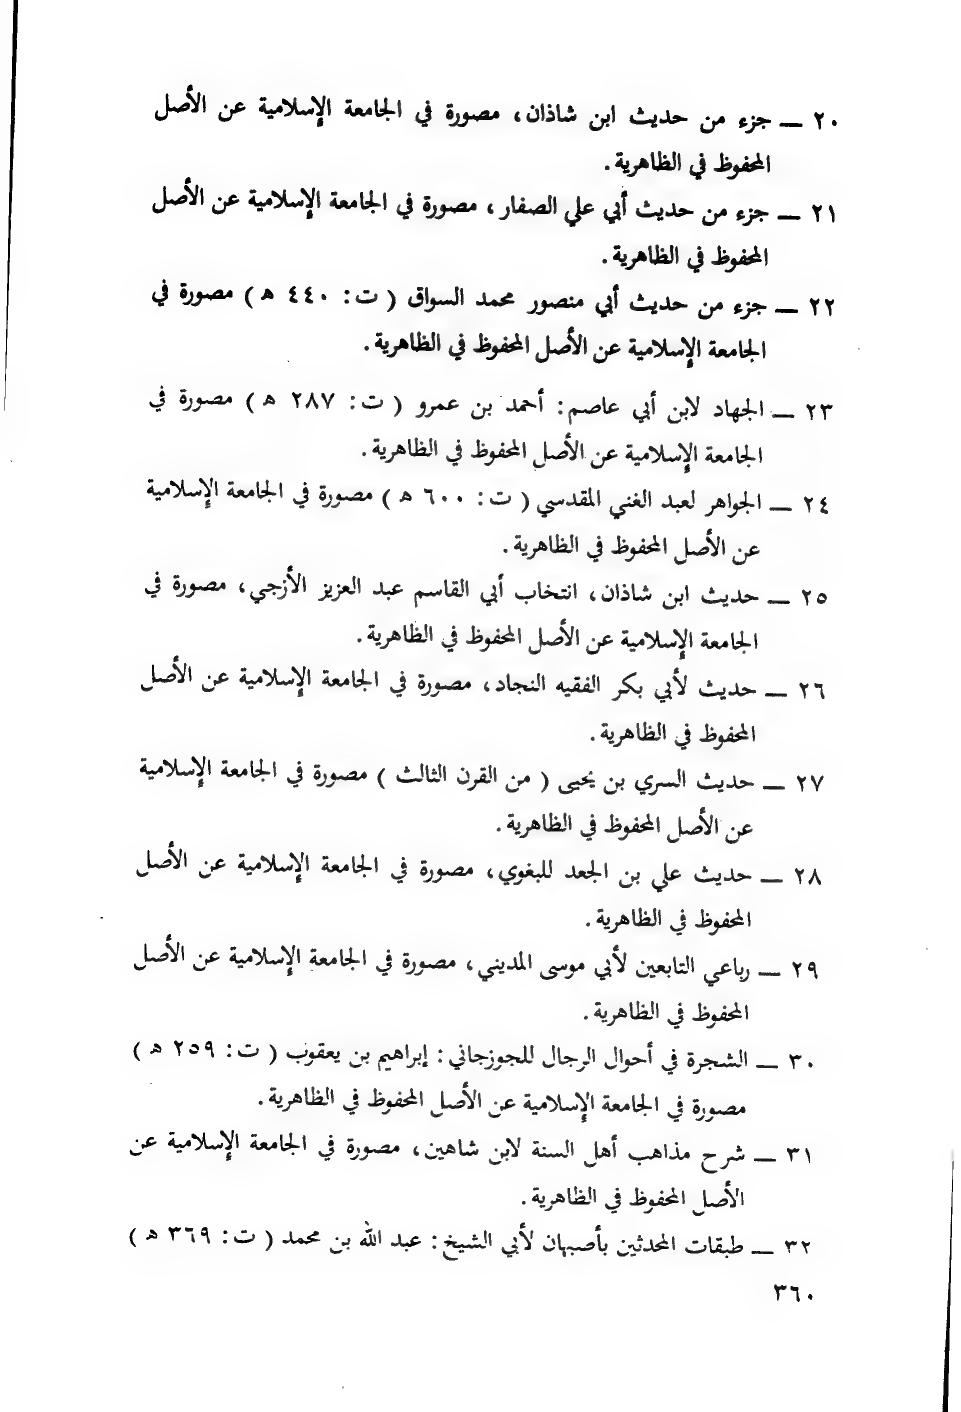 ٢٠ ــ جزء من حديث ابن شاذان، مصورة في الجامعة الإسلامية عن الأصل
المحفوظ في الظاهرية.
٢١ ــ جزء من حديث أبي علي الصفار، مصورة في الجامعة الإسلامية عن الأصل
المحفوظ في الظاهرية.
٢٢ ــ جزء من حديث أبي منصور محمد السواق ( ت: ٤٤٠ هـ ) مصورة في
الجامعة الإسلامية عن الأصل المحفوظ في الظاهرية.
٢٣ ــ الجهاد لابن أبي عاصم: أحمد بن عمرو ( ت: ٢٨٧ هـ ) مصورة في
الجامعة الإسلامية عن الأصل المحفوظ في الظاهرية.
٢٤ ــ الجواهر لعبد الغني المقدسي ( ت: ٦٠٠ هـ ) مصورة في الجامعة الإسلامية
عن الأصل المحفوظ في الظاهرية.
٢٥ ــ حديث ابن شاذان، انتخاب أبي القاسم عبد العزيز الأزجي، مصورة في
الجامعة الإسلامية عن الأصل المحفوظ في الظاهرية.
٢٦ ــ حديث لأبي بكر الفقيه النجاد، مصورة في الجامعة الإسلامية عن الأصل
المحفوظ في الظاهرية.
٢٧ ــ حديث السري بن يحيى ( من القرن الثالث ) مصورة في الجامعة الإسلامية
عن الأصل المحفوظ في الظاهرية.
٢٨ ــ حديث علي بن الجعد للبغوي، مصورة في الجامعة الإسلامية عن الأصل
المحفوظ في الظاهرية.
٢٩ ــ رباعي التابعين لأبي موسى المديني، مصورة في الجامعة الإسلامية عن الأصل
المحفوظ في الظاهرية.
٣٠ ــ الشجرة في أحوال الرجال للجوزجاني: إبراهيم بن يعقوب ( ت: ٢٥٩ هـ )
مصورة في الجامعة الإسلامية عن الأصل المحفوظ في الظاهرية.
٣١ ــ شرح مذاهب أهل السنة لابن شاهين، مصورة في الجامعة الإسلامية عن
الأصل المحفوظ في الظاهرية.
٣٢ ــ طبقات المحدثين بأصبهان لأبي الشيخ: عبد الله بن محمد ( ت: ٣٦٩ هـ )
٣٦٠